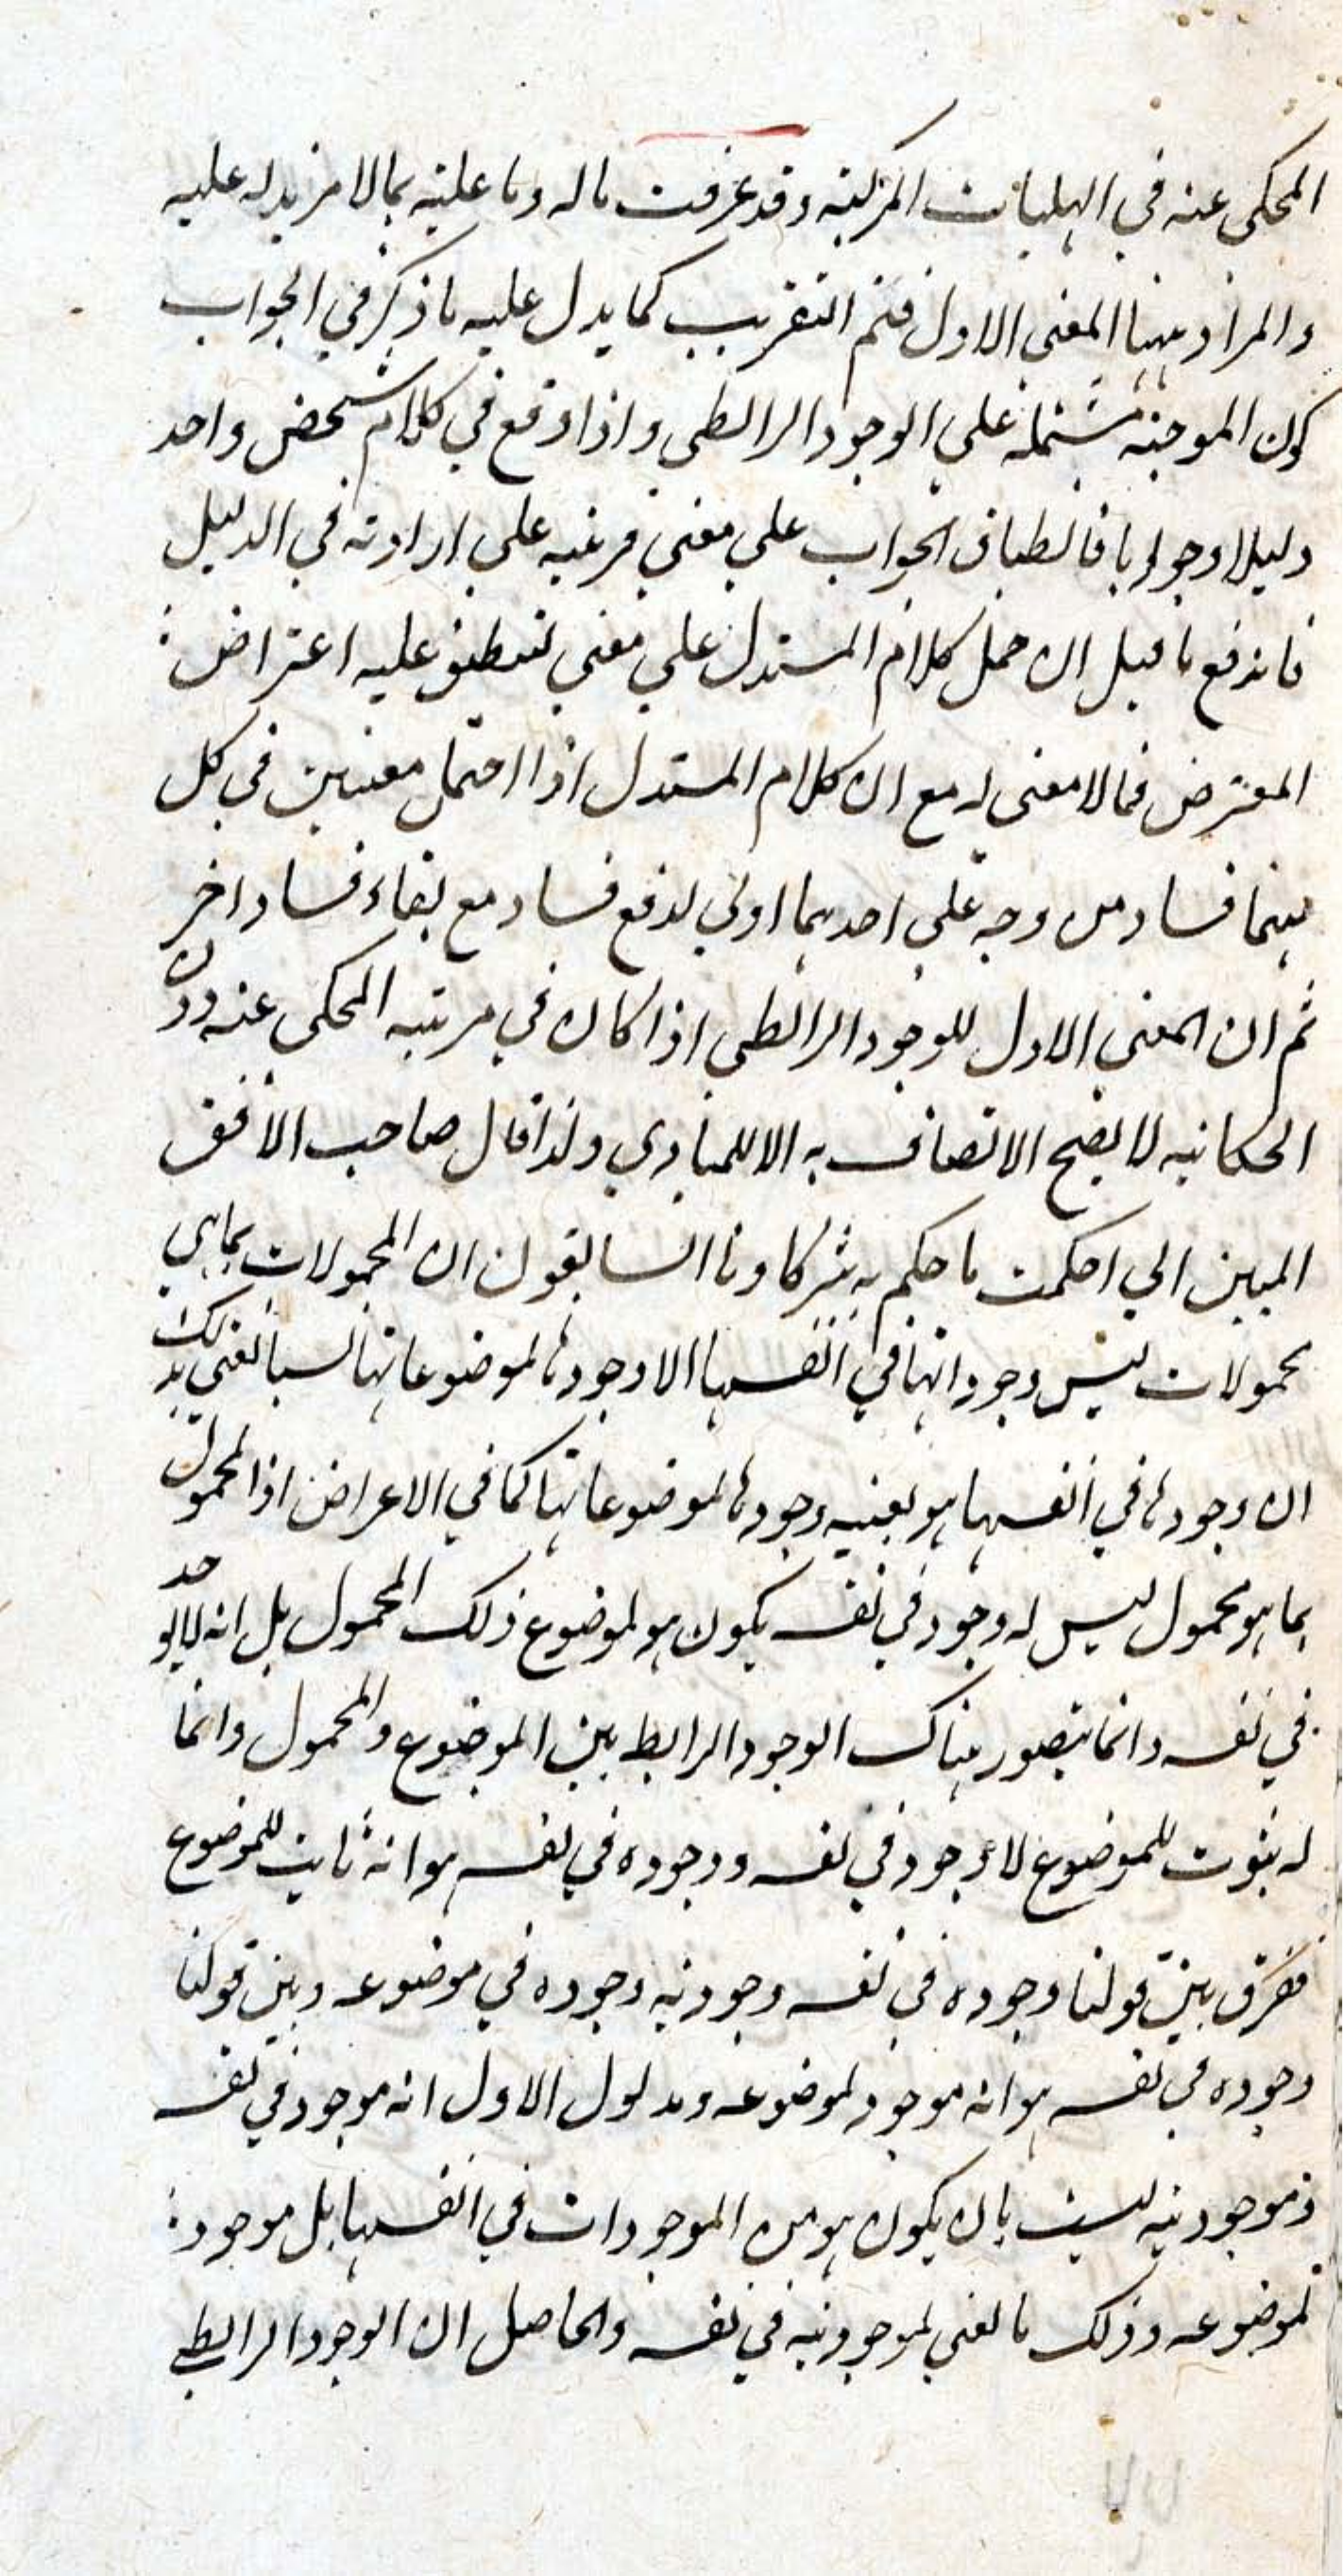 المحكي عنه في الهليات المركبة وقد عرفت ما له وما عليه بما لا مزيد له عليه
والمراد ههنا المعني الاول فتم التقريب كما يدل عليه ما ذكر في الجواب
كون الموجبة مشتملة علي الوجود الرابطي واذا وقع في كلام شخص واحد
دليلا وجوابا فانطباق الجواب علي معني قرينة علي ارادته في الدليل
فاندفع ما قيل ان حمل كلام المستدل علي معني لينطبق عليه اعتراض
المعترض فما لا معني له مع ان كلام المستدل اذا احتمل معنيين في كل
منهما فساد من وجه علي احدهما اولي لدفع فساد مع بقاء فساد اخر
ثم ان المعني الاول للوجود الرابطي اذا كان في مرتبة المحكي عنه دون
الحكاية لا يصح الاتصاف به الا للمبادي ولذا قال صاحب الافق
المبين اني احكمت ما حكم به شركاونا السابقون ان المحمولات بما هي
محمولات ليس وجوداتها في انفسها الا وجودها لموضوعاتها لسنا نعني بذلك
ان وجودها في انفسها هو بعينه وجودها لموضوعاتها كما في الاعراض اذ المحمول
بما هو محمول ليس له وجود في نفسه يكون هو لموضوع ذلك المحمول بل انه لا يوجد
في نفسه وانما يتصور هناك الوجود الرابط بين الموضوع والمحمول وانما
له ثبوت للموضوع لا وجود في نفسه ووجوده في نفسه هو انه ثابت للموضوع
ففرق بين قولنا وجوده في نفسه وجودية وجوده في موضوعه وبين قولنا
وجوده في نفسه هو انه موجود لموضوعه ومدلول الاول انه موجود في نفسه
فموجوديته ليست بان يكون هو من الموجودات في انفسها بل موجود
لموضوعه وذلك ما نعني لموجوديته في نفسه والحاصل ان الوجود الرابطي